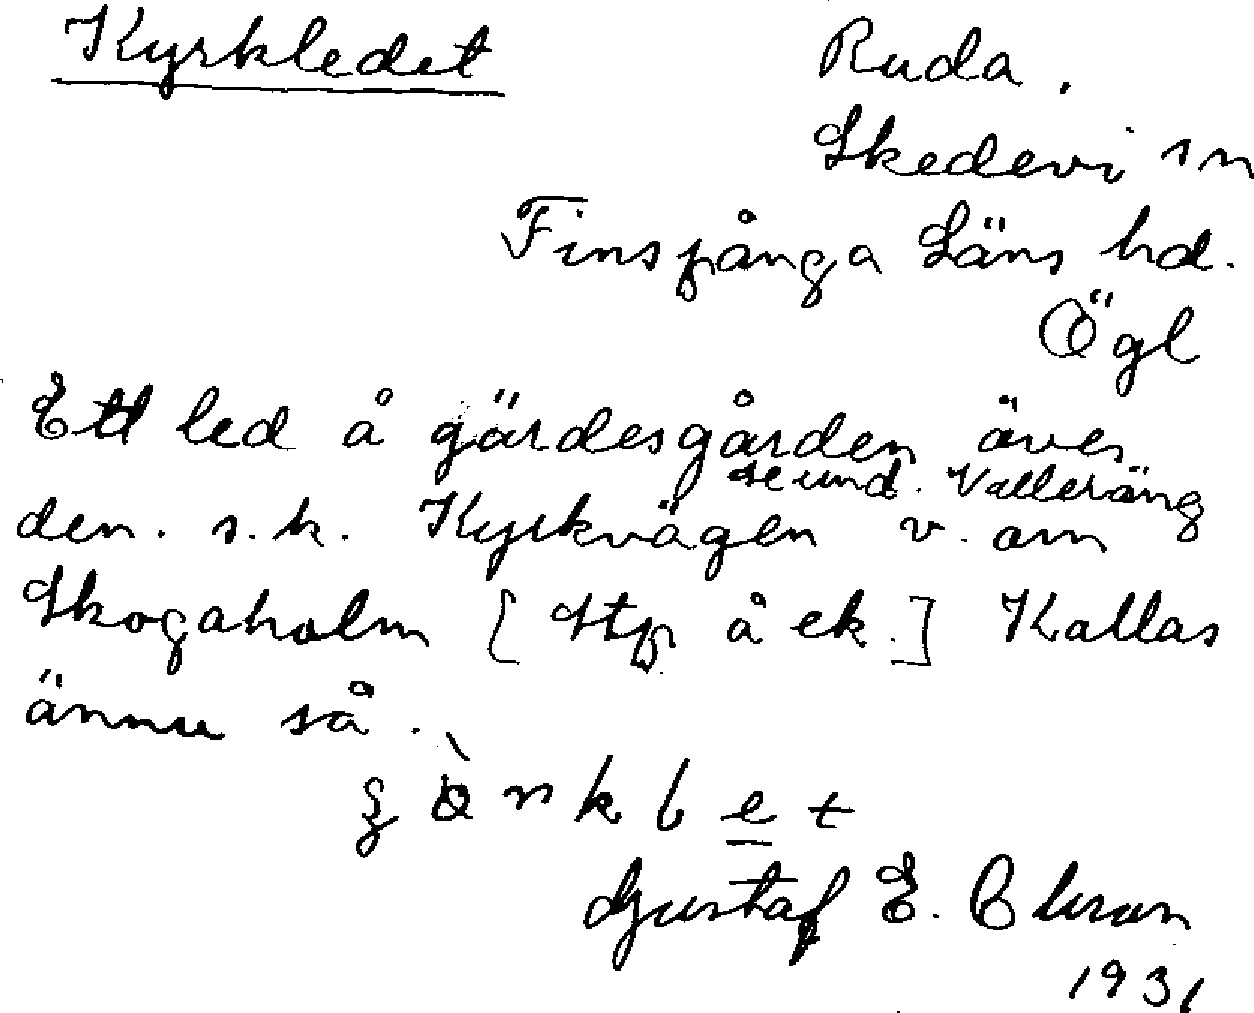 Kyrkledet
Ruda.
Skedevi sn
Finspånga Läns hd.
Ögl
Ett led å gärdesgården över
se und. Valleräng
den. s.k. Kyrkvägen v. om
Skogaholm [Htp å ek.] Kallas
ännu så.
Gustaf E.
1931